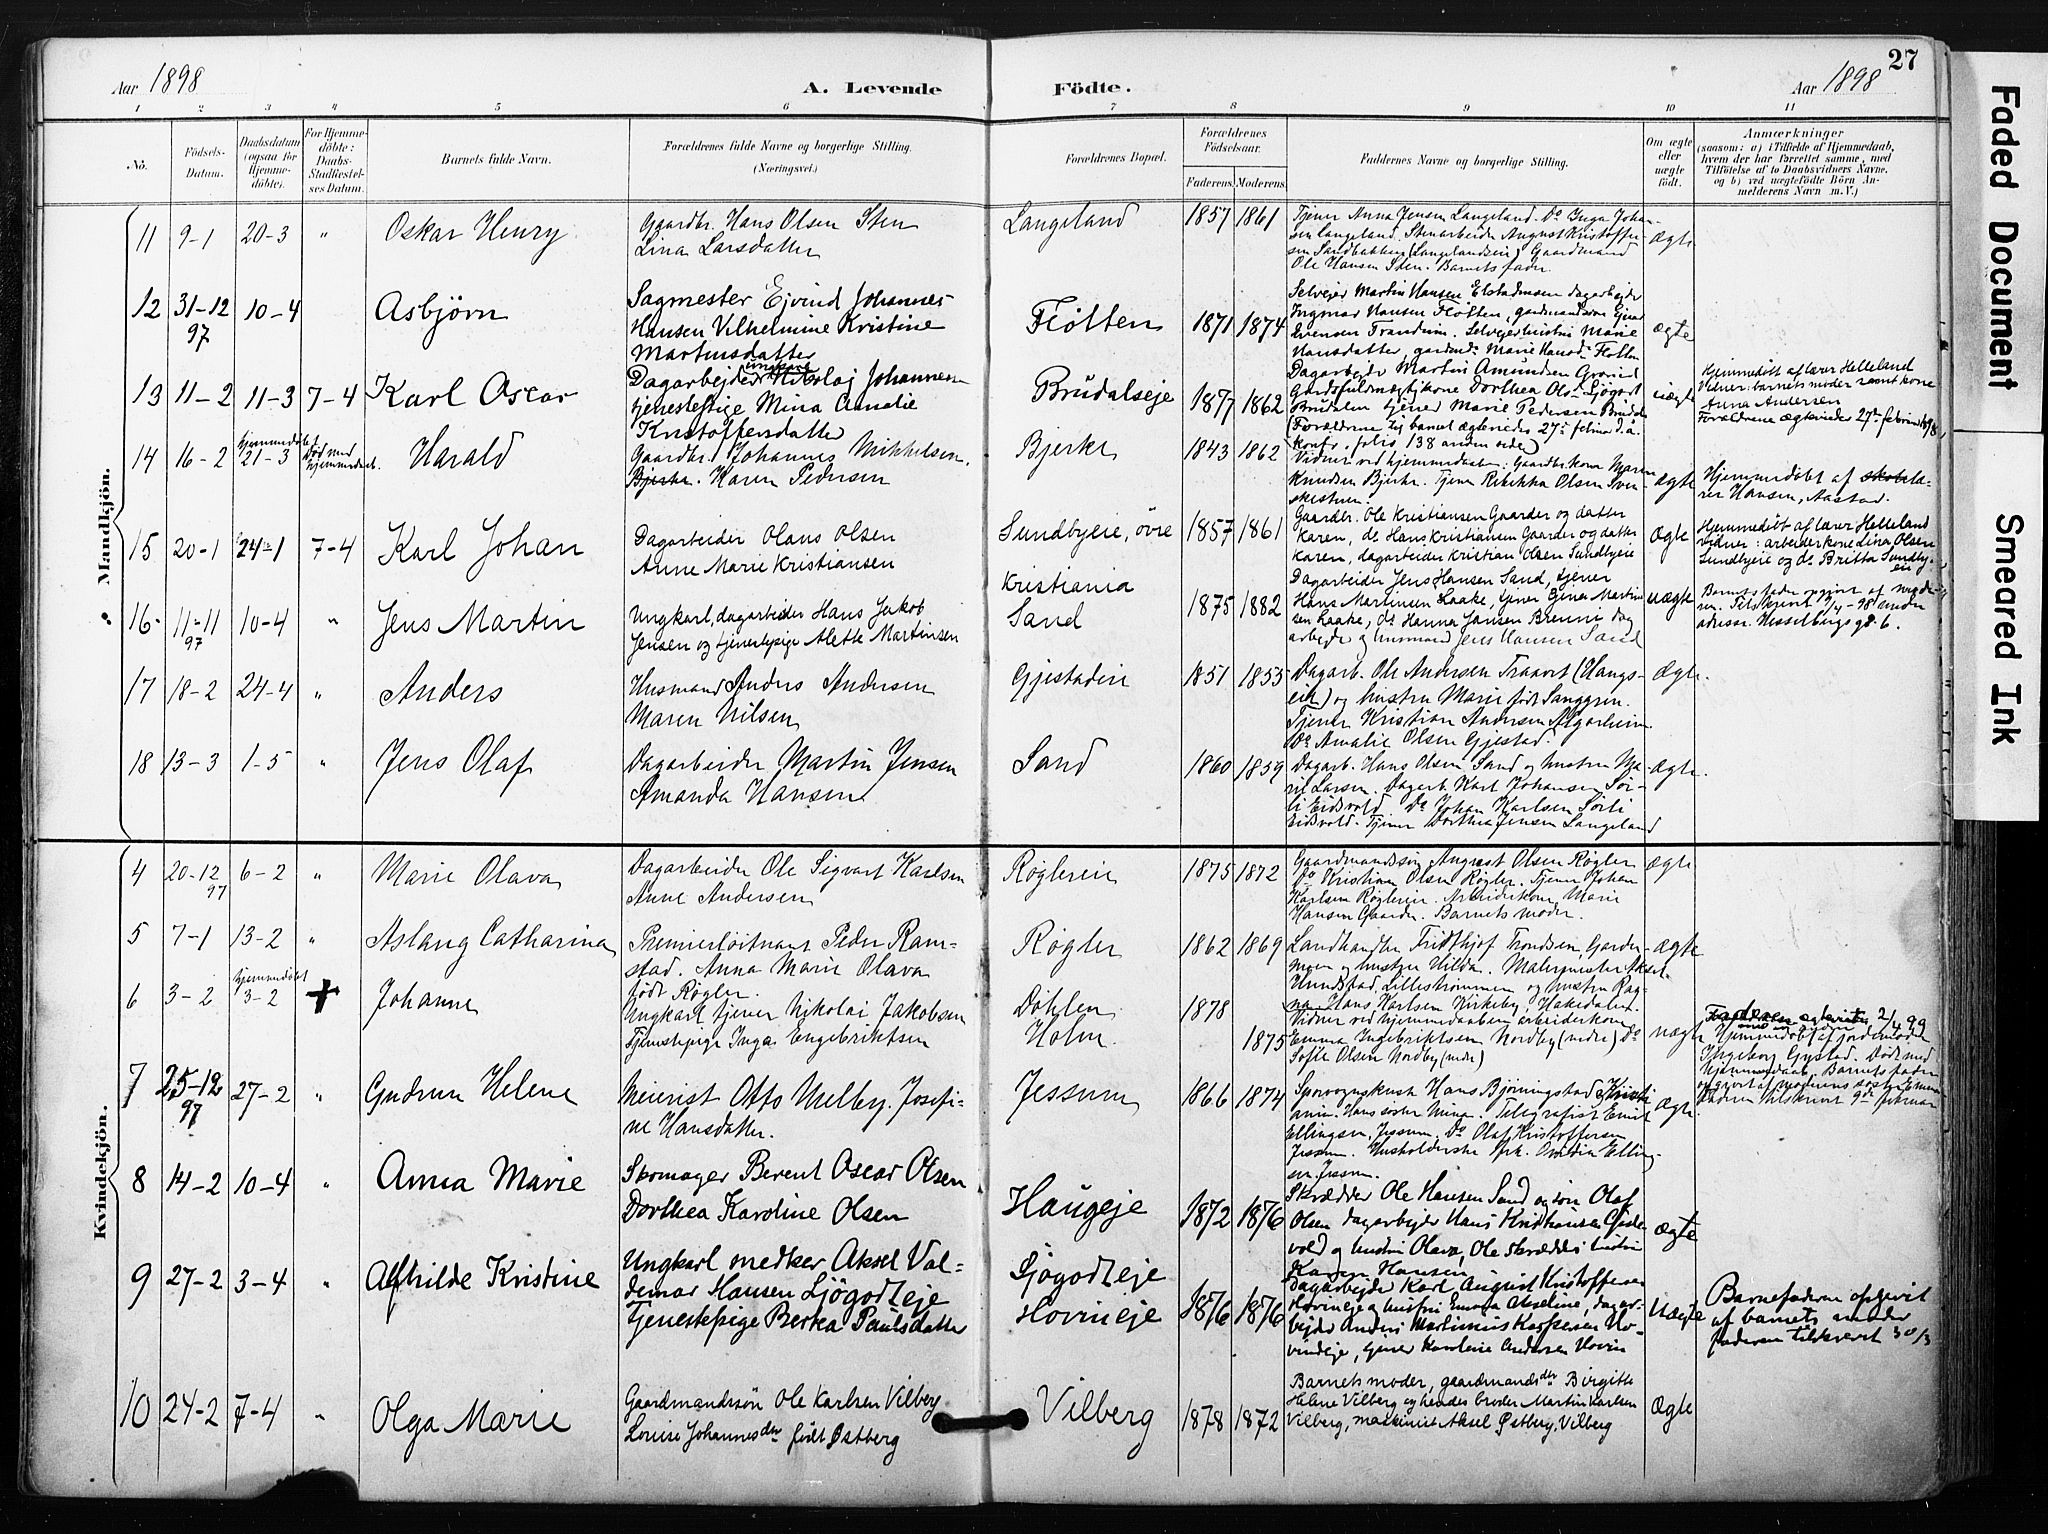 27
Aar 1898
A. Levende Födte.
Aar 1898
1 2 3 4 5 6 7 8 9 10 11
No.
Födsels-Datum.
Daabsdatum (ogsaa for Hjemme-döbte).
For Hjemme-döbte: Daabs-Stadfæstel-ses Datum.
Barnets fulde Navn.
Forældrenes fulde Navne og borgerlige Stilling. (Næringsvei.)
Forældrenes Bopæl.
Forældrenes Födselsaar.
Faderens. Moderens.
Faddernes Navne og borgerlige Stilling.
Om ægte eller uægte født.
Anmærkninger
(saasom: a) i Tilfælde af Hjemmedaab, hvem der har forrettet samme, med Tilföielse af to Daabsvidners Navne, og b) ved uægtefödte Börn An-melderens Navn m. V.)
Mandkjön.
11 9-1 20-3 " Oskar Henry
Gaardbr. Hans Olsen Sten
Lina Larsdatter
Langeland 1857 1861
Tjener Anna Jensen Langeland. Do Inga Johan-
sen Langeland. Stenarbeider August Kristoffer-
sen Sandbakken (Langelandseie) Gaardmand
Ole Hansen Sten. Barnets fader.
Ægte
12 31-12 97 10-4 Asbjørn
Sagmester Ejvind Johannes
Hansen Vilhelmine Kristine
Martinsdatter
Fløtten 1871 1874
Selvejer Martin Hansen dagarbejder
Ingmar Hansen Fløtten, gardmandssøn Ejner
Svensen Trandum. Selvejerhustru Marie
Hansdatter, Marie Hansd. Fløtten
Ægte
13 11-2 11-3 7-4 Karl Oscar
Dagarbejder ungkarl Nikolaj Johannesen
tjenestepige Mina Amalie
Kristoffersdatter
Brudalseje 1877 1862
Dagarbejder Martin Amundsen
Gardsfuldmægtigkone Dorthea Olsd. Sjøgost
Brudalen tjener Marie Pedersen Brudalen
(Forældrene til barnet ægteviedes 27de februar d.a.
konfr. folio 138 anden side)
uægte
Hjemmedøbt af lærer Helleland
Vidner: barnets moder samt kone
Anna Andersen
Forældrene ægteviedes 27de februar 1898
14 16-2 hjemmedøbt 21-3 Død med hjemmedaab. Harald
Gaardbr. Johannes Mikkelsen
Bjerke. Karen Pedersen
Bjerke 1843 1862
Vidner ved hjemmedaaben: Gaardbr.kone Maren
Knudsen Bjerke. Tjener Rebekka Olsen Sven-
skestuen.
Ægte
Hjemmedøbt af skolelæ-
rer Hansen, Aastad.
15 20-1 24-1 7-4 Karl Johan
Dagarbeider Olaus Olsen
Anne Marie Kristiansen
Sundbyeie, øvre 1857 1861
Gaardbr. Ole Kristiansen Gaarder og datter
Karen, do Hans Kristiansen Gaarder og datter
Karen, dagarbeider Kristian Olsen Sundbyeie
Ægte
Hjemmedøbt af lærer Helleland
vidner: arbeiderkone Lina Olsen
Sundbyeie og do Britta Sundby-
eie
16. 11-11 97 10-4 " Jens Martin
Ungkarl, dagarbeider Hans Jakob
Jensen og tjenestepige Alette Martinsen
Kristiania
Sand 1875 1882
Dagarbeider Jens Hansen Sand, tjener
Hans Martinsen Laake, tjener Ejner Martin-
sen Laake, do Hanna Jansen Brenni, dag-
arbejder og husmand Jens Hansen Sand
uægte
Barnets fader opgivet af mode-
ren. Tilskrevet 1/4-98 under
adresse: Hesselbergs gd. 6.
17 18-2 24-4 " Anders
Husmand Anders Andersen
Maren Nilsen
Gjestadeie 1851 1855
Dagarb. Ole Andersen (Haugs-
eie) og hustru Marie født Sanggren.
Tjener Kristian Andersen Algarheim
Do Amalie Olsen Gjestad.
Ægte.
18 13-3 1-5 " Jens Olaf
Dagarbeider Martin Jensen
Amanda Hansen
Sand 1860 1859
Dagarb. Hans Olsen Sand og hustru Ma-
rie Larsen. Dagarb. Karl Johansen Sør-
li Eidsvold. Do Johan Karlsen Sørli
Eidsvold. Tjener Dorthea Jensen Langeland
Ægte.
Kvindekjön.
4 20-12 97 6-2 " Marie Olava
Dagarbeider Ole Sigvart Karlsen
Anne Andersen
Røglereie 1875 1872
Gaardmandssøn August Olsen Røgler
do Kristian Olsen Røgler. Tjener Johan
Karlsen Røglereie. Arbeiderkone Marie
Hansen Gaarder. Barnets moder.
Ægte
5 7-1 13-2 " Aslaug Catharina
Premierløitnant Peder Ram-
stad. Anna Marie Olava
født Røgler.
Røgler 1862 1869
Landhandler Fridthjof Trondsen, Garder-
moen og hustru Hilda. Malermester Aksel
Hundstad, Lillestrømmen og hustru Rag-
na. Hans Karlsen Kirkeby, Hakedalen.
Ægte
6 3-2 hjemmedøbt 3-2 + Johanne
Ungkarl tjener Nikolai Jakobsen
Tjenestepige Inga Engebriktsen
Døhlen 1878
Holm. 1875
Vidner ved hjemmedaaben arbeiderkone
Emma Ingebriktsen Nordby (nedre) Do
Sofie Olsen Nordby (nedre)
uægte
Forældrene ægteviede 2/4 99
Hjemmedøbt af jordemoder
Ingeborg Gjestad. Død med
hjemmedaab. Barnets fader
opgivet af moderens søster Emma
Faderen tilskrevet 9de februar
7 25-12 97 27-2 " Gudrun Helene
Meierist Otto Melby. Josefi-
ne Hansdatter.
Jessum 1866 1874
Sporvognskusk Hans Bjørningstad Kristi-
ania. Hans søster Mina. Telegrafist Emil
Ellingsen, Jessum. Do Olaf Kristoffersen
Jessum. Husholderske frk. Ovidia Elling-
sen Jessum.
Ægte
8 14-2 10-4 " Anna Marie
Skomager Berent Oscar Olsen
Dorthea Karoline Olsen
Haugeje 1872 1876
Skrædder Ole Hansen Sand og søn Olaf
Olsen dagarbejder Hans Kristiansen
vold og hustru Olava, Ole skrædders hustru
Karen Hansen
Ægte
9 27-2 3-4 " Alfhilde Kristine
Ungkarl Aksel Val-
demar Hansen Sjøgodteje
Tjenestepige Berta Paulsdatter
Sjøgodteje
Hovineje 1876 1876
Dagarbejder Karl August Kristoffersen
Hovineje og hustru Emma Axeline, dagar-
bejder Anders Martinius Kaspersen Ho-
vineje, tjener Karoline Andersen Hovin
Uægte
Barnefaderen opgivet
af barnets moder
faderen tilskrevet 30/3
10 24-2 7-4 " Olga Marie
Gaardmandssøn Ole Karlsen Vilberg
Louise Johannesdtr født Østberg
Vilberg 1878 1872
Barnets moder, gaardmandsdtr Birgitte
Helene Vilberg og hendes broder Martin Karlsen
Vilberg, maskinist Aksel Østberg, Vilberg
Ægte
Faded Document
Smeared Ink